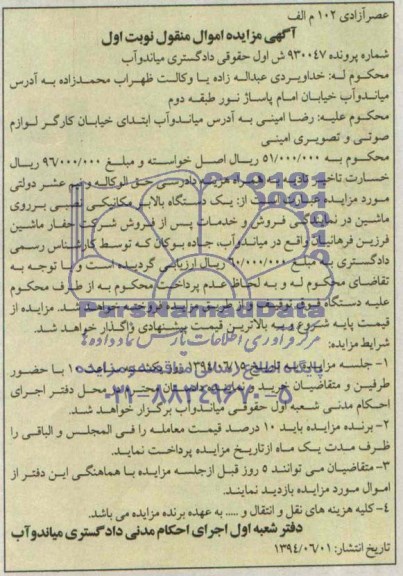 عصرآزادی ۱۰۲ م الف
آگهی مزایده اموال منقول نوبت اول
شماره پرونده ۹۳۰۰۴۷ ش اول حقوقی دادگستری میاندوآب
محکوم له: خداویردی عبداله زاده با وکالت طهراب محمدزاده به آدرس
میاندوآب خیابان امام پاساژ نور طبقه دوم
محکوم علیه: رضا امینی به آدرس میاندوآب ابتدای خیابان کارگر لوازم
صوتی و تصویری امینی
محکوم به ۵۱/۰۰۰/۰۰۰ ریال اصل خواسته و مبلغ ۹۶/۰۰۰/۰۰۰ ریال
خسارت تاخیر به همراه هزینه دادرسی حق الوکاله و نیم عشر دولتی
مورد مزایده عبارت است از: یک دستگاه بالابر مکانیکی نصبی برروی
ماشین در نمایندگی فروش و خدمات پس از فروش شرکت حفار ماشین
فرزین فرهانیان واقع در میاندوآب، جاده بوکان که توسط کارشناس رسمی
دادگستری به مبلغ ۶۰/۰۰۰/۰۰۰ ریال ارزیابی گردیده است و با توجه به
تقاضای محکوم له و به لحاظ عدم پرداخت محکوم به از طرف محکوم
علیه دستگاه فوق توقیف و از طریق مزایده فروخته خواهد شد. مزایده از
قیمت پایه شروع و به بالاترین قیمت پیشنهادی واگذار خواهد شد.
شرایط مزایده:
۱- جلسه مزایده به تاریخ ۱۳۹۴/۰۶/۱۵ روز یکشنبه ساعت ۱۰ با حضور
طرفین و متقاضیان خرید و نماینده دادستان محترم در محل دفتر اجرای
احکام مدنی شعبه اول حقوقی میاندوآب برگزار خواهد شد.
۲- برنده مزایده باید ۱۰ درصد قیمت معامله را فی المجلس و الباقی را
ظرف مدت یک ماه از تاریخ مزایده پرداخت نماید.
۳- متقاضیان می توانند ۵ روز قبل ازجلسه مزایده با هماهنگی این دفتر از
اموال مورد مزایده بازدید نمایند.
۴- کلیه هزینه های نقل و انتقال و ..... به عهده برنده مزایده می باشد.
دفتر شعبه اول اجرای احکام مدنی دادگستری میاندوآب
تاریخ انتشار: ۱۳۹۴/۰۶/۰۱
ParsNamadData
مرکز فرآوری اطلاعات پارس نماد داده ها
۰۲۱-۸۸۳۴۹۶۷۰-۵